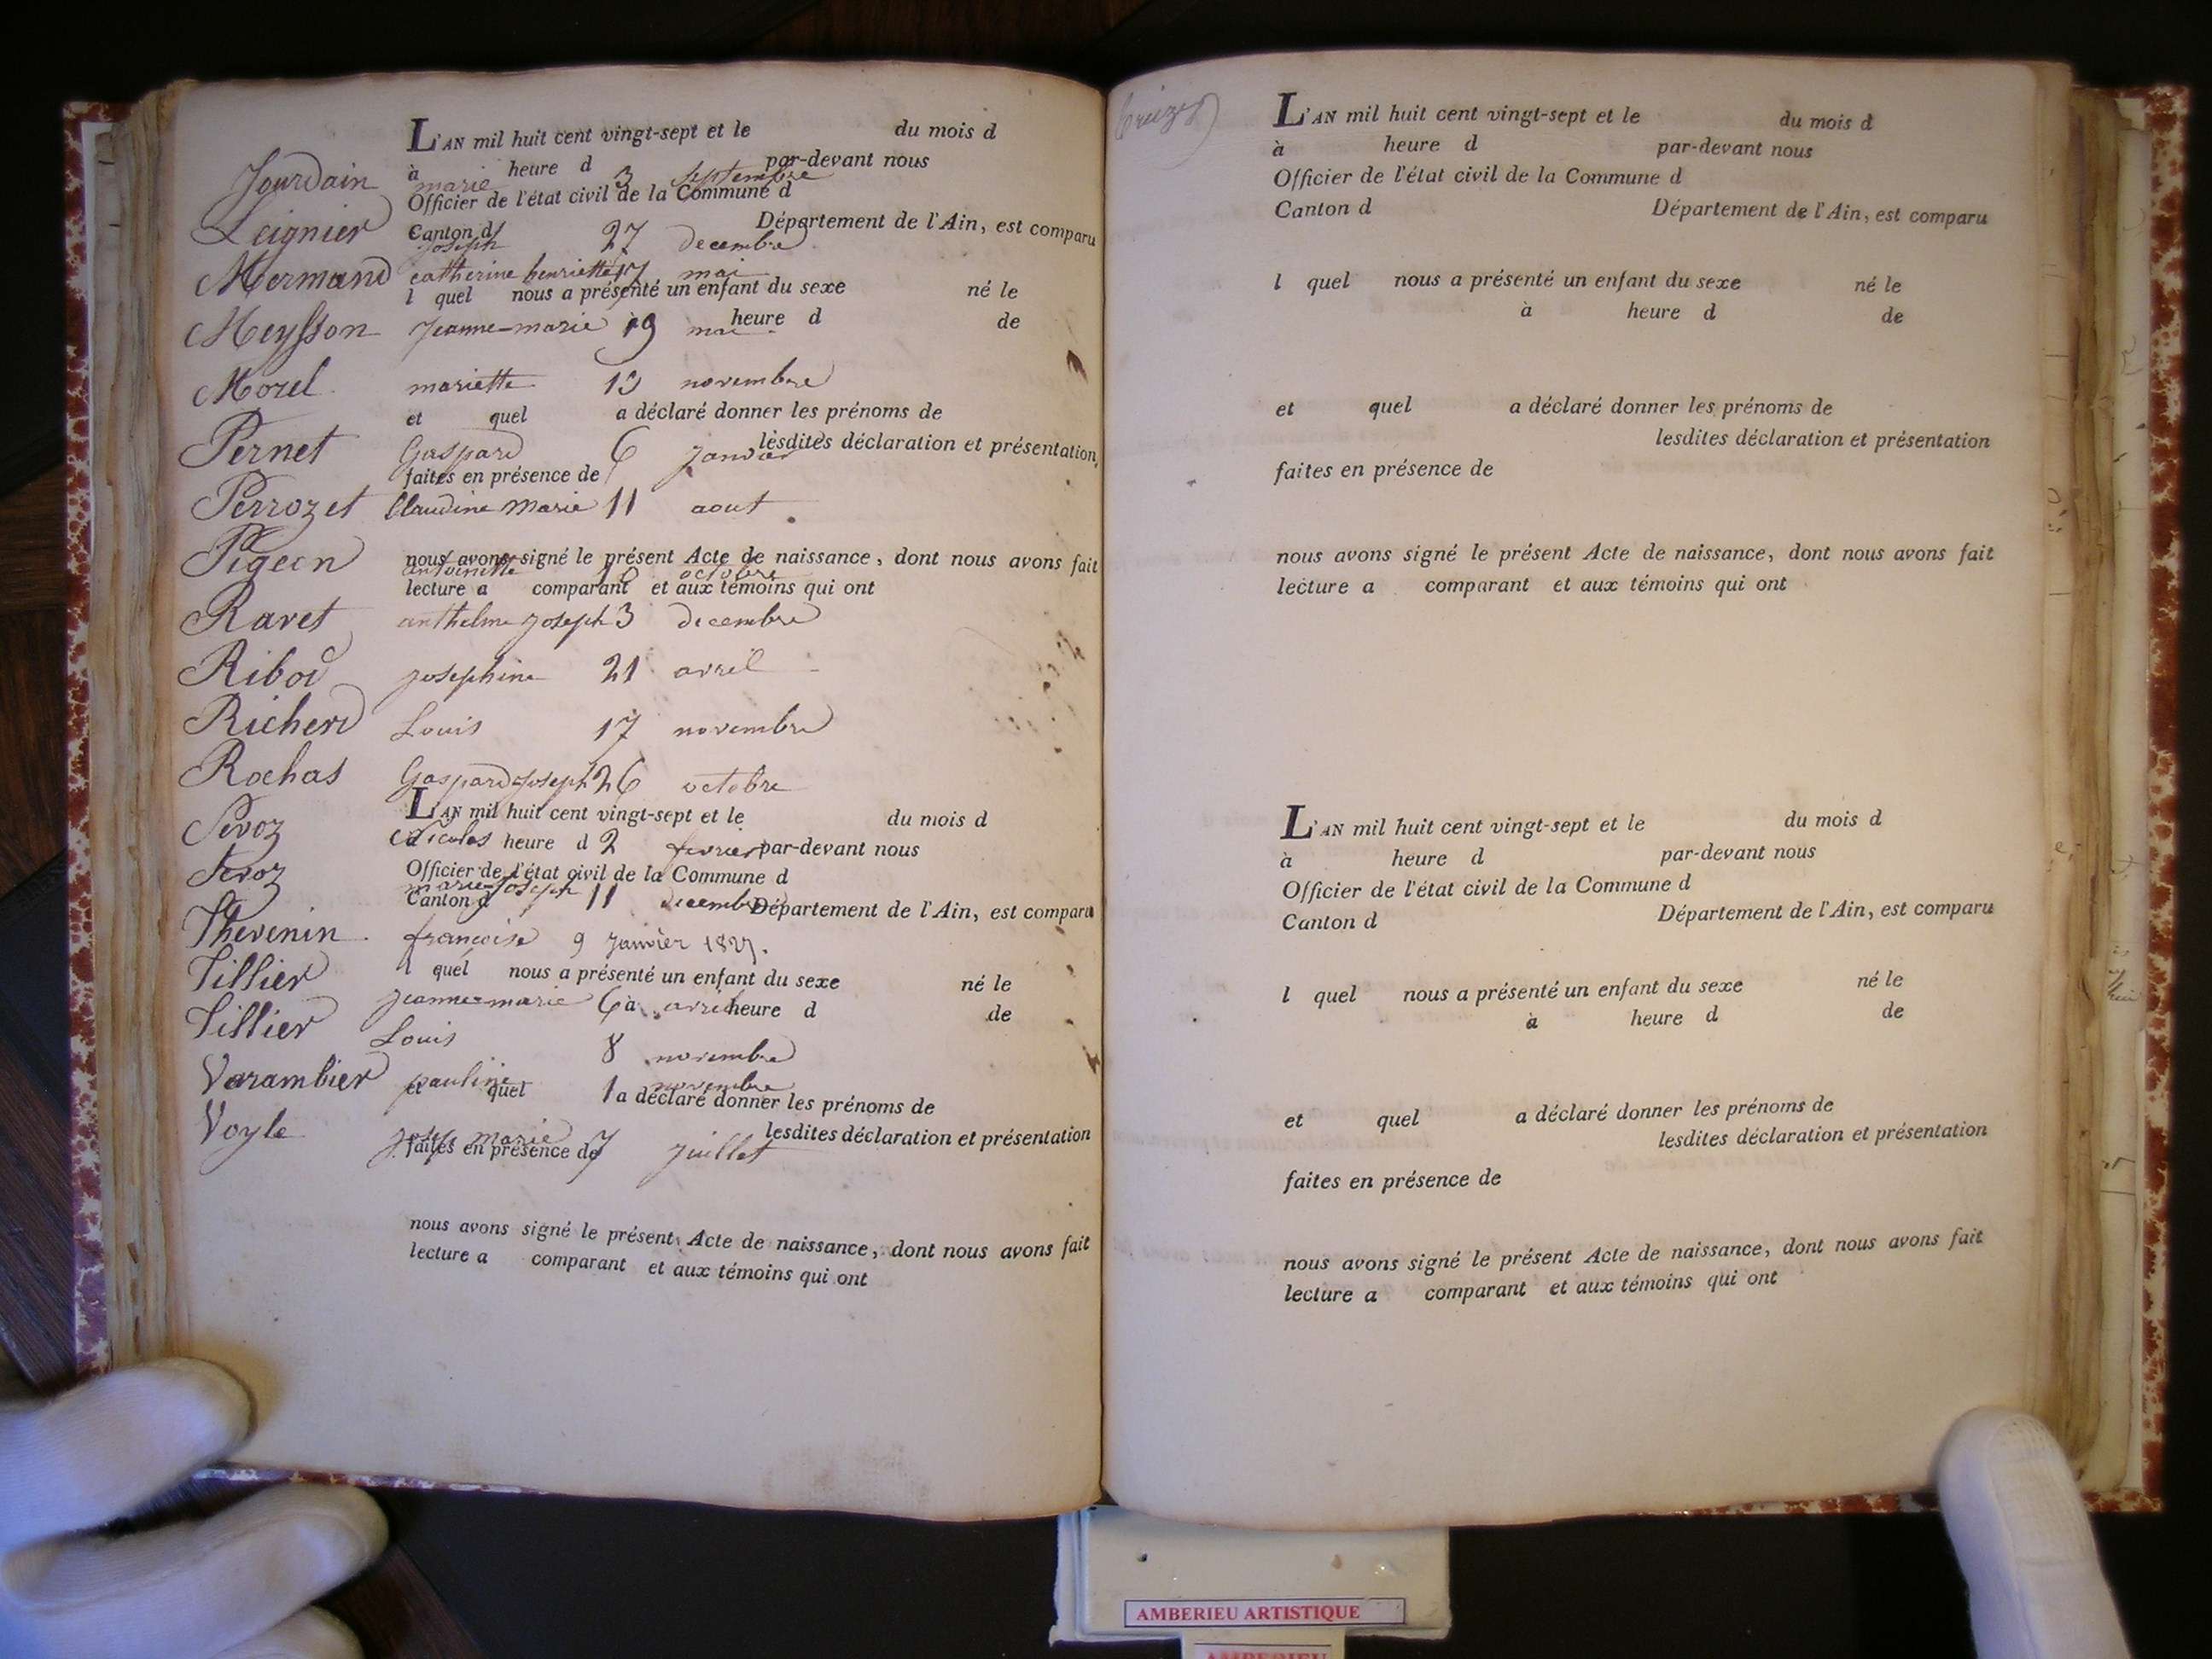 L'AN mil huit cent vingt-sept et le du mois d
à heure d par-devant nous
Jourdain marie 3 septembre
Officier de l'état civil de la Commune d
Canton d Département de l'Ain, est comparu
Leignier joseph 27 decembre
Mermand catherine henriette 17 mai
l quel nous a présenté un enfant du sexe né le
à heure d de
Meysson jeanne-marie 19 mai
Morel mariette 13 novembre
et quel a déclaré donner les prénoms de
lesdites déclaration et présentation
Pernet Gaspard 6 janvier
faites en présence de
Perrozet Claudine Marie 11 aout
nous avons signé le présent Acte de naissance, dont nous avons fait
Pigeon antoinette octobre
lecture a comparant et aux témoins qui ont
Ravet anthelme joseph 3 decembre
Ribod josephine 21 avril
Richerd Louis 17 novembre
Rochas Gaspard joseph 26 octobre
L'AN mil huit cent vingt-sept et le du mois d
à heure d par-devant nous
Sevoz Nicolas 2 fevrier
Officier de l'état civil de la Commune d
Sevoz marie-joseph 11 decembre
Canton d Département de l'Ain, est comparu
Thevenin francoise 9 janvier 1827.
l quel nous a présenté un enfant du sexe né le
Tillier jeanne-marie 6 avril
à heure d de
Tillier Louis 8 novembre
Varambier pauline 1 novembre
et quel a déclaré donner les prénoms de
lesdites déclaration et présentation
Voyle marie 7 juillet
faites en présence de
nous avons signé le présent Acte de naissance, dont nous avons fait
lecture a comparant et aux témoins qui ont
L'AN mil huit cent vingt-sept et le du mois d
à heure d par-devant nous
Officier de l'état civil de la Commune d
Canton d Département de l'Ain, est comparu
l quel nous a présenté un enfant du sexe né le
à heure d de
et quel a déclaré donner les prénoms de
lesdites déclaration et présentation
faites en présence de
nous avons signé le présent Acte de naissance, dont nous avons fait
lecture a comparant et aux témoins qui ont
L'AN mil huit cent vingt-sept et le du mois d
à heure d par-devant nous
Officier de l'état civil de la Commune d
Canton d Département de l'Ain, est comparu
l quel nous a présenté un enfant du sexe né le
à heure d de
et quel a déclaré donner les prénoms de
lesdites déclaration et présentation
faites en présence de
nous avons signé le présent Acte de naissance, dont nous avons fait
lecture a comparant et aux témoins qui ont
AMBERIEU ARTISTIQUE
AMBERIEU